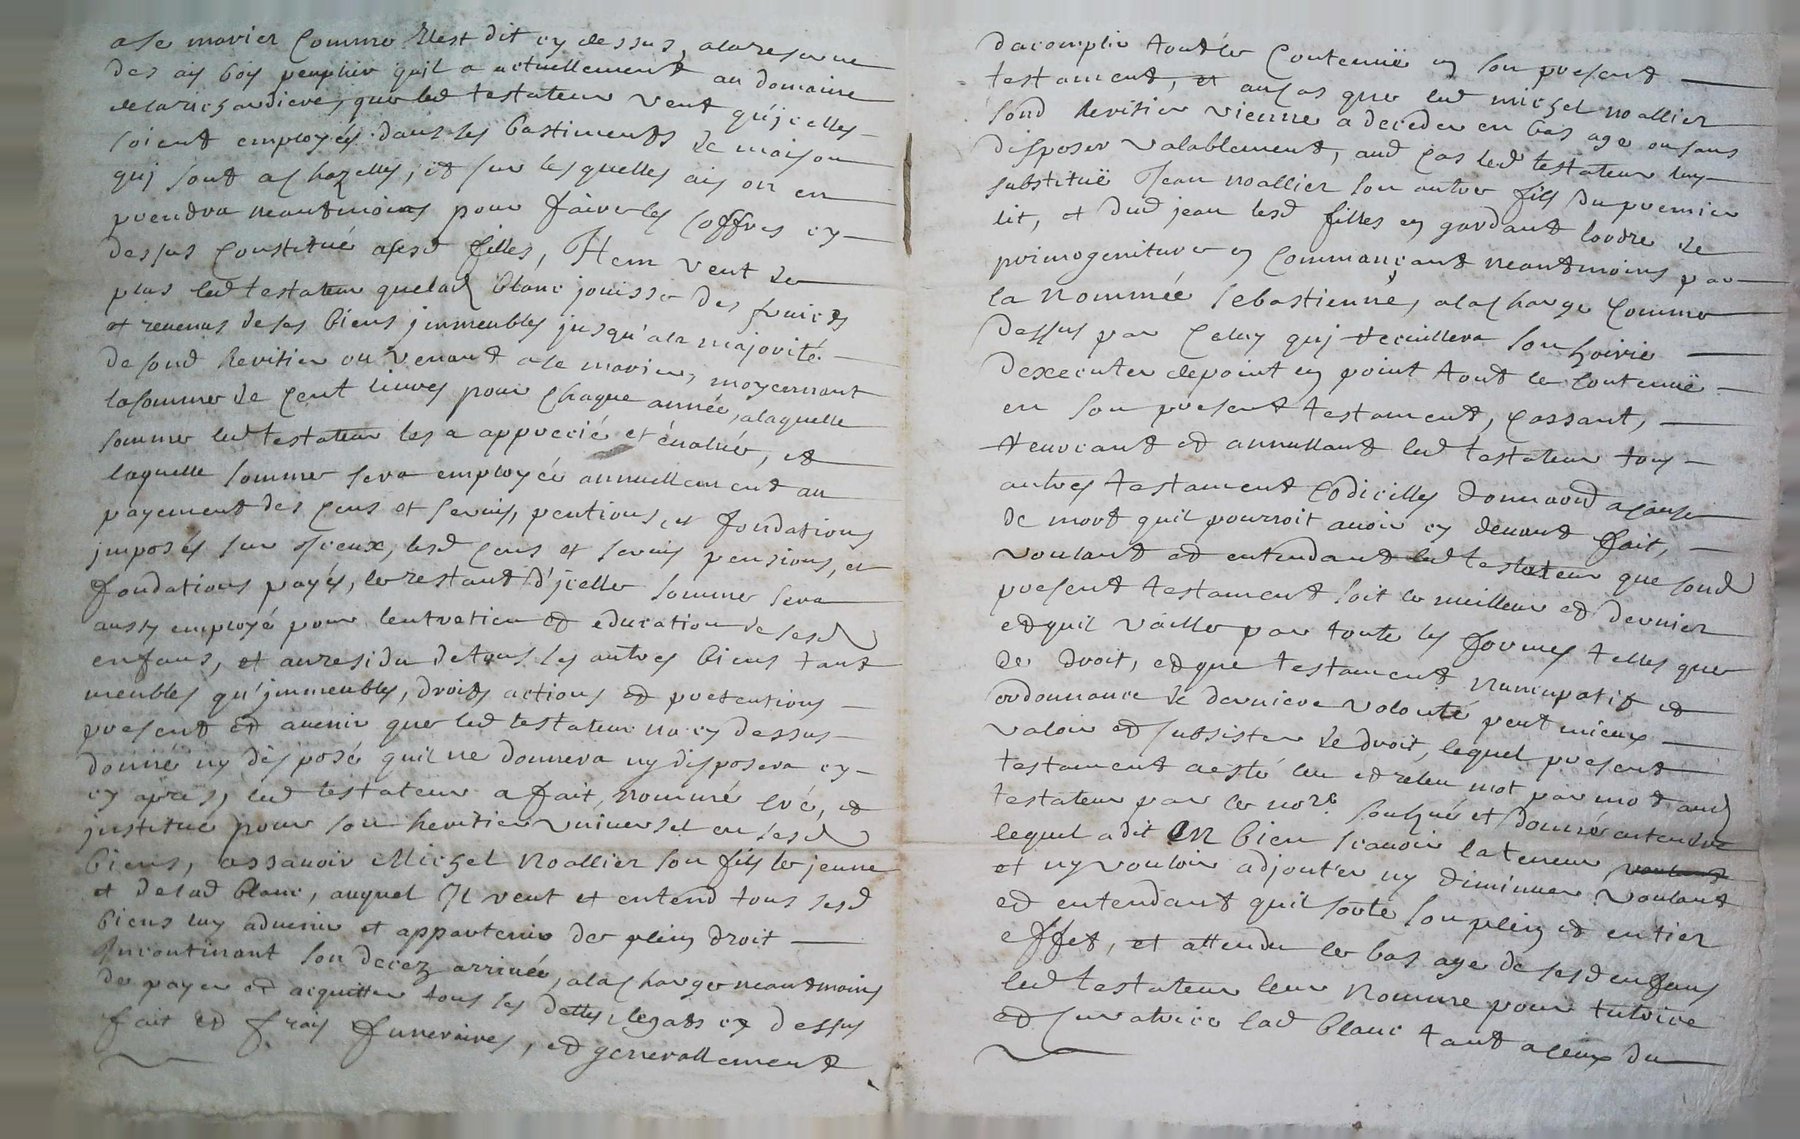 a se marier comme Il est dit cy dessus, a la reserve
des ais bois peuplier quil a actuellement au domaine
de la richardiere, que led testateur veut qu'jcelles
soient employés dans les bastiments de maison
quj sont a chazelles, et sur lesquelles ais on en
prendra neantmoins pour faire les coffres cy
dessus constitué a sesd filles, Item veut de
plus led testateur que lad blanc jouisse des fruicts
et revenus de ses biens jmmeubles jusqu'a la majorité
de sond heritier ou venant a se marier, moyennant
la somme de cent livres pour chaque année, a laquelle
somme led testateur les a apprecié et évalué, et
laquelle somme sera employée annuellement au
payement des cens et servis, pentions, et fondations
jmposés sur Iceux, lesd cens et servis pensions, et
fondations payés, le restant d'jcelle somme sera
aussy employé pour lentretien et education de sesd
enfans, et au residu de tous les autres biens tant
meubles qu'jmmeubles, droits actions et pretentions
present et avenir que led testateur na cy dessus
donné ny disposé quil ne donnera ny disposera cy
cy apres, led testateur a fait, nommé créé, et
jnstitué pour son heritier universel en sesd
biens, assavoir Michel Noallier son fils le jeune
et de lad blanc, auquel Il veut et entend tous sesd
biens luy advenir et appartenir de plein droit
Incontinant son decez arrivée, a la charge neantmoins
de payer et acquitter tous les dettes, legats cy dessus
fait et frais funeraires, et generallement
dacomplir tout le contenuë en son present
testament, et au cas que led michel noallier
sond heritier vienne a deceder en bas age ou sans
disposer valablement, aud cas led testateur luy
substituë Jean noallier son autre fils du premier
lit, et dud jean lesd filles en gardant lordre de
primogeniture en commançant neantmoins par
la nommée sebastienne, a la charge comme
dessus par celuy quj recuillera son hoirie
dexecuter de point en point tout le contenuë
en son present testament, cassant,
revocant et annullant led testateur tous
autres testament codicilles donnaond a cause
de mort quil pourroit avoir cy devant fait,
voulant et entendant led testateur que sond
present testament soit le meilleur et dernier
et quil vaille par toute les formes telles que
de droit, et que testament nuncupatif et
ordonnance de derniere volonté peut mieux
valoir et subsister de droit, lequel present
testament a esté leu et releu mot par mot aud
testateur par le no.re soubzné et donné entendre
lequel a dit en bien scavoir la teneur voulant
et ny vouloir adjouter ny diminuer voulant
et entendant quil sorte son plein et entier
effet, et attendu le bas age de sesd enfans
led testateur leur nomme pour tutrice
et curatrice lad blanc tant a ceux du